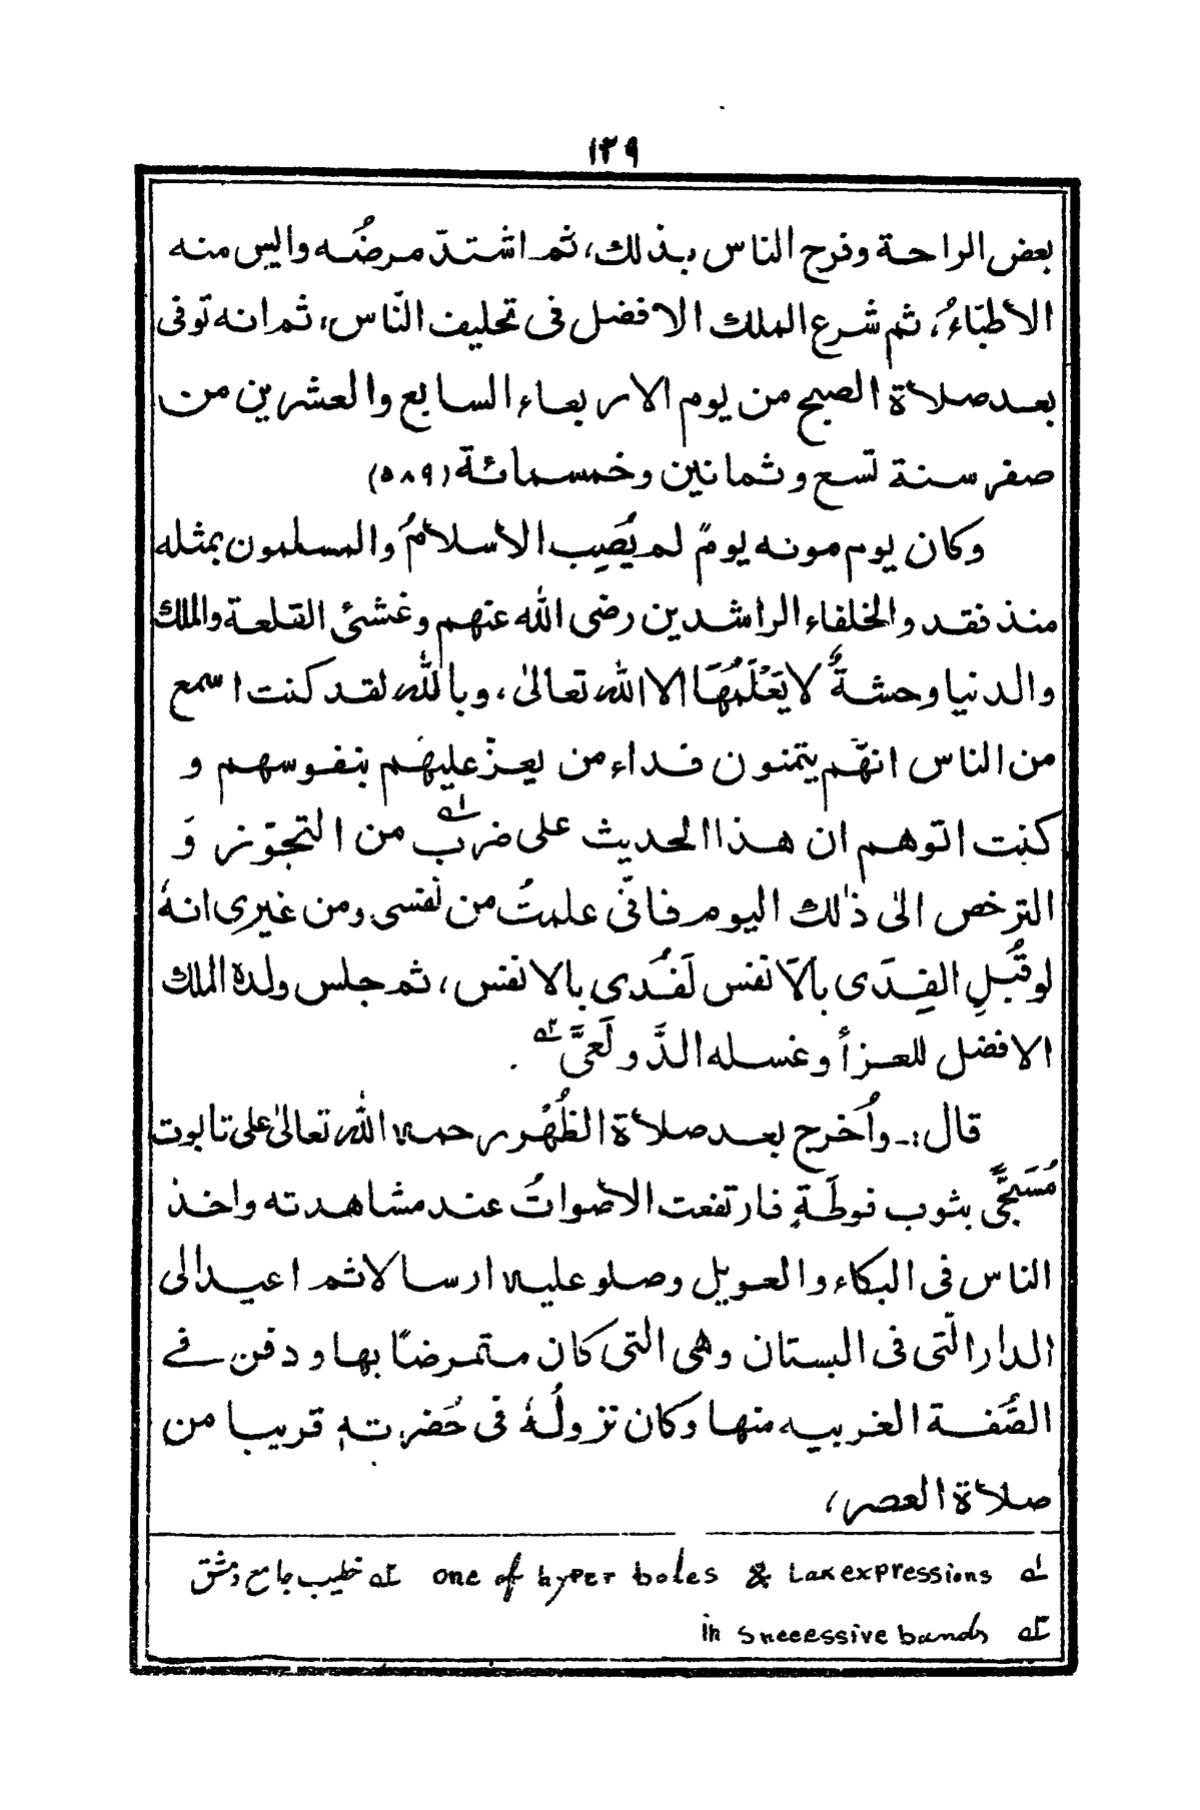 ١٢٩
بعض الراحة وفرح الناس بذلك، ثم اشتدّ مرضُه وايس منه
الاطبّاءُ، ثم شرع الملك الافضل فى تحليف النّاس، ثم انه توفى
بعد صلاة الصبح من يوم الاربعاء السابع والعشرين من
صفر سنة تسع وثمانين وخمسمائة (٥٨٩)
وكان يوم موته يومً لم يُصَبِ الاسلامُ والمسلمون بمثله
منذ فقد والخلفاء الراشدين رضى الله عنهم وغشئ القلعة والملك
والدنيا وحشةٌ لا يَعْلَمُهَا الا الله تعالىٰ، وبالله لقد كنت اسمع
من الناس انهّم يتمنون فداء من يعزّ عليهم بنفوسهم و
كنت اتوهم ان هذا الحديث على ضرب له من التجوّز وَ
الترخص الىٰ ذٰلك اليوم فانّى علمتُ من نفسى ومن غيرى انهٗ
لو قُبِلِ الفِدَى بالَانفس لَفُدى بالانفس، ثم جلس ولده الملك
الافضل للعزأ وغسله الدَّولَعىَّ ٢ه .
قال:۔ واُخرج بعد صلاة الظُهْر رحمه الله تعالىٰ على تابوت
مُسَجًّى بثوب فوطَةٍ فارتفعت الاصواتُ عند مشاهدته واخذ
الناس فى البكاء والعويل وصلو عليه ارسالا ثم اعيد الى
الدار الّتى فى البستان وهى التى كان متمرضًا بها ودفن فے
الصُّفة الغربيه منها وكان نزولُهٗ فى حُضرتهِ قريبا من
صلاة العصر،
١ه one of hyper boles & Lax expressions ٢ه خطيب جامع دمشق
٣ه in sneeessive bands